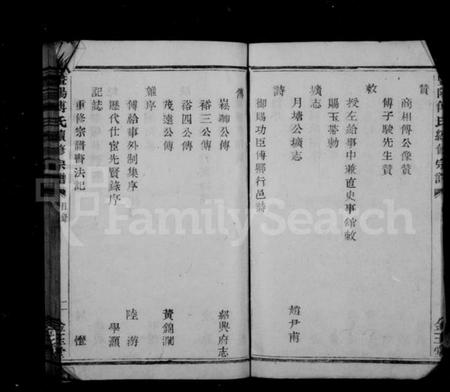 贊
商相傅公像贊
傅子駿先生贊
敕
授左給事中兼直史館敕
賜玉帶勅
壙志
月塘公壙志 趙尹甫
詩
御賜功臣傅鄉行邑詩
傳
裕三公傳
裕四公傳
茂遠公傳 黃錦瀾
紹興府志
雜序
傅給事外制集序 陸游
歷代仕宦先賢錄序 學灝
記誌
重修宗譜書法記
FamilySearch